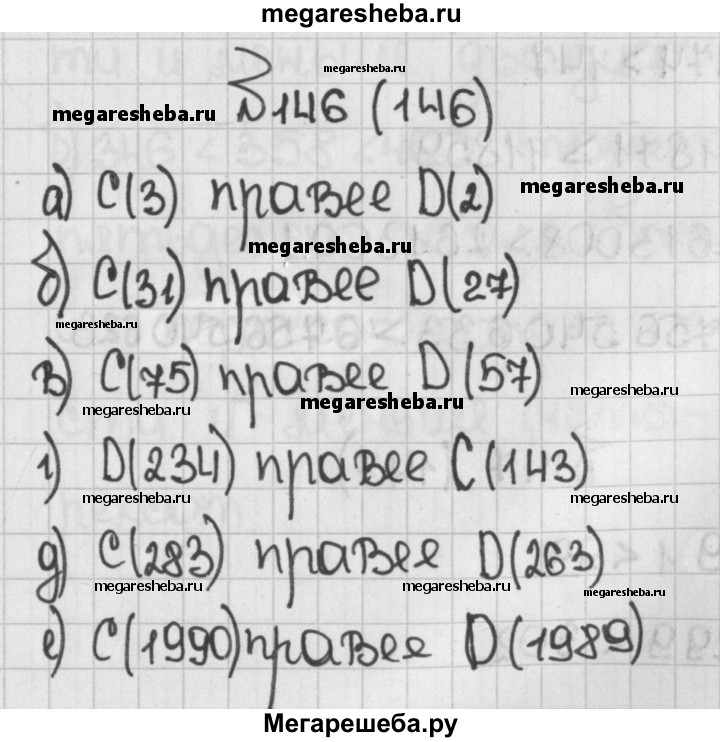 megaresheba.ru
megaresheba.ru
megaresheba.ru
№146 (146)
а) C(3) правее D(2)
megaresheba.ru
megaresheba.ru
б) C(31) правее D(27)
megaresheba.ru
в) C(75) правее D(57)
megaresheba.ru
megaresheba.ru
megaresheba.ru
г) D(234) правее C(143)
megaresheba.ru
megaresheba.ru
д) C(283) правее D(263)
megaresheba.ru
megaresheba.ru
megaresheba.ru
е) C(1990) правее D(1989)
Мегарешеба.ру